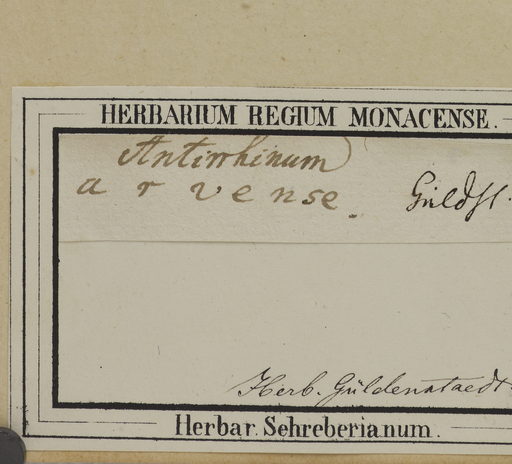 HERBARIUM REGIUM MONACENSE.
Antirrhinum
arvense. Güldst.
Herb. Güldenstaedt.
Herbar. Schreberianum.